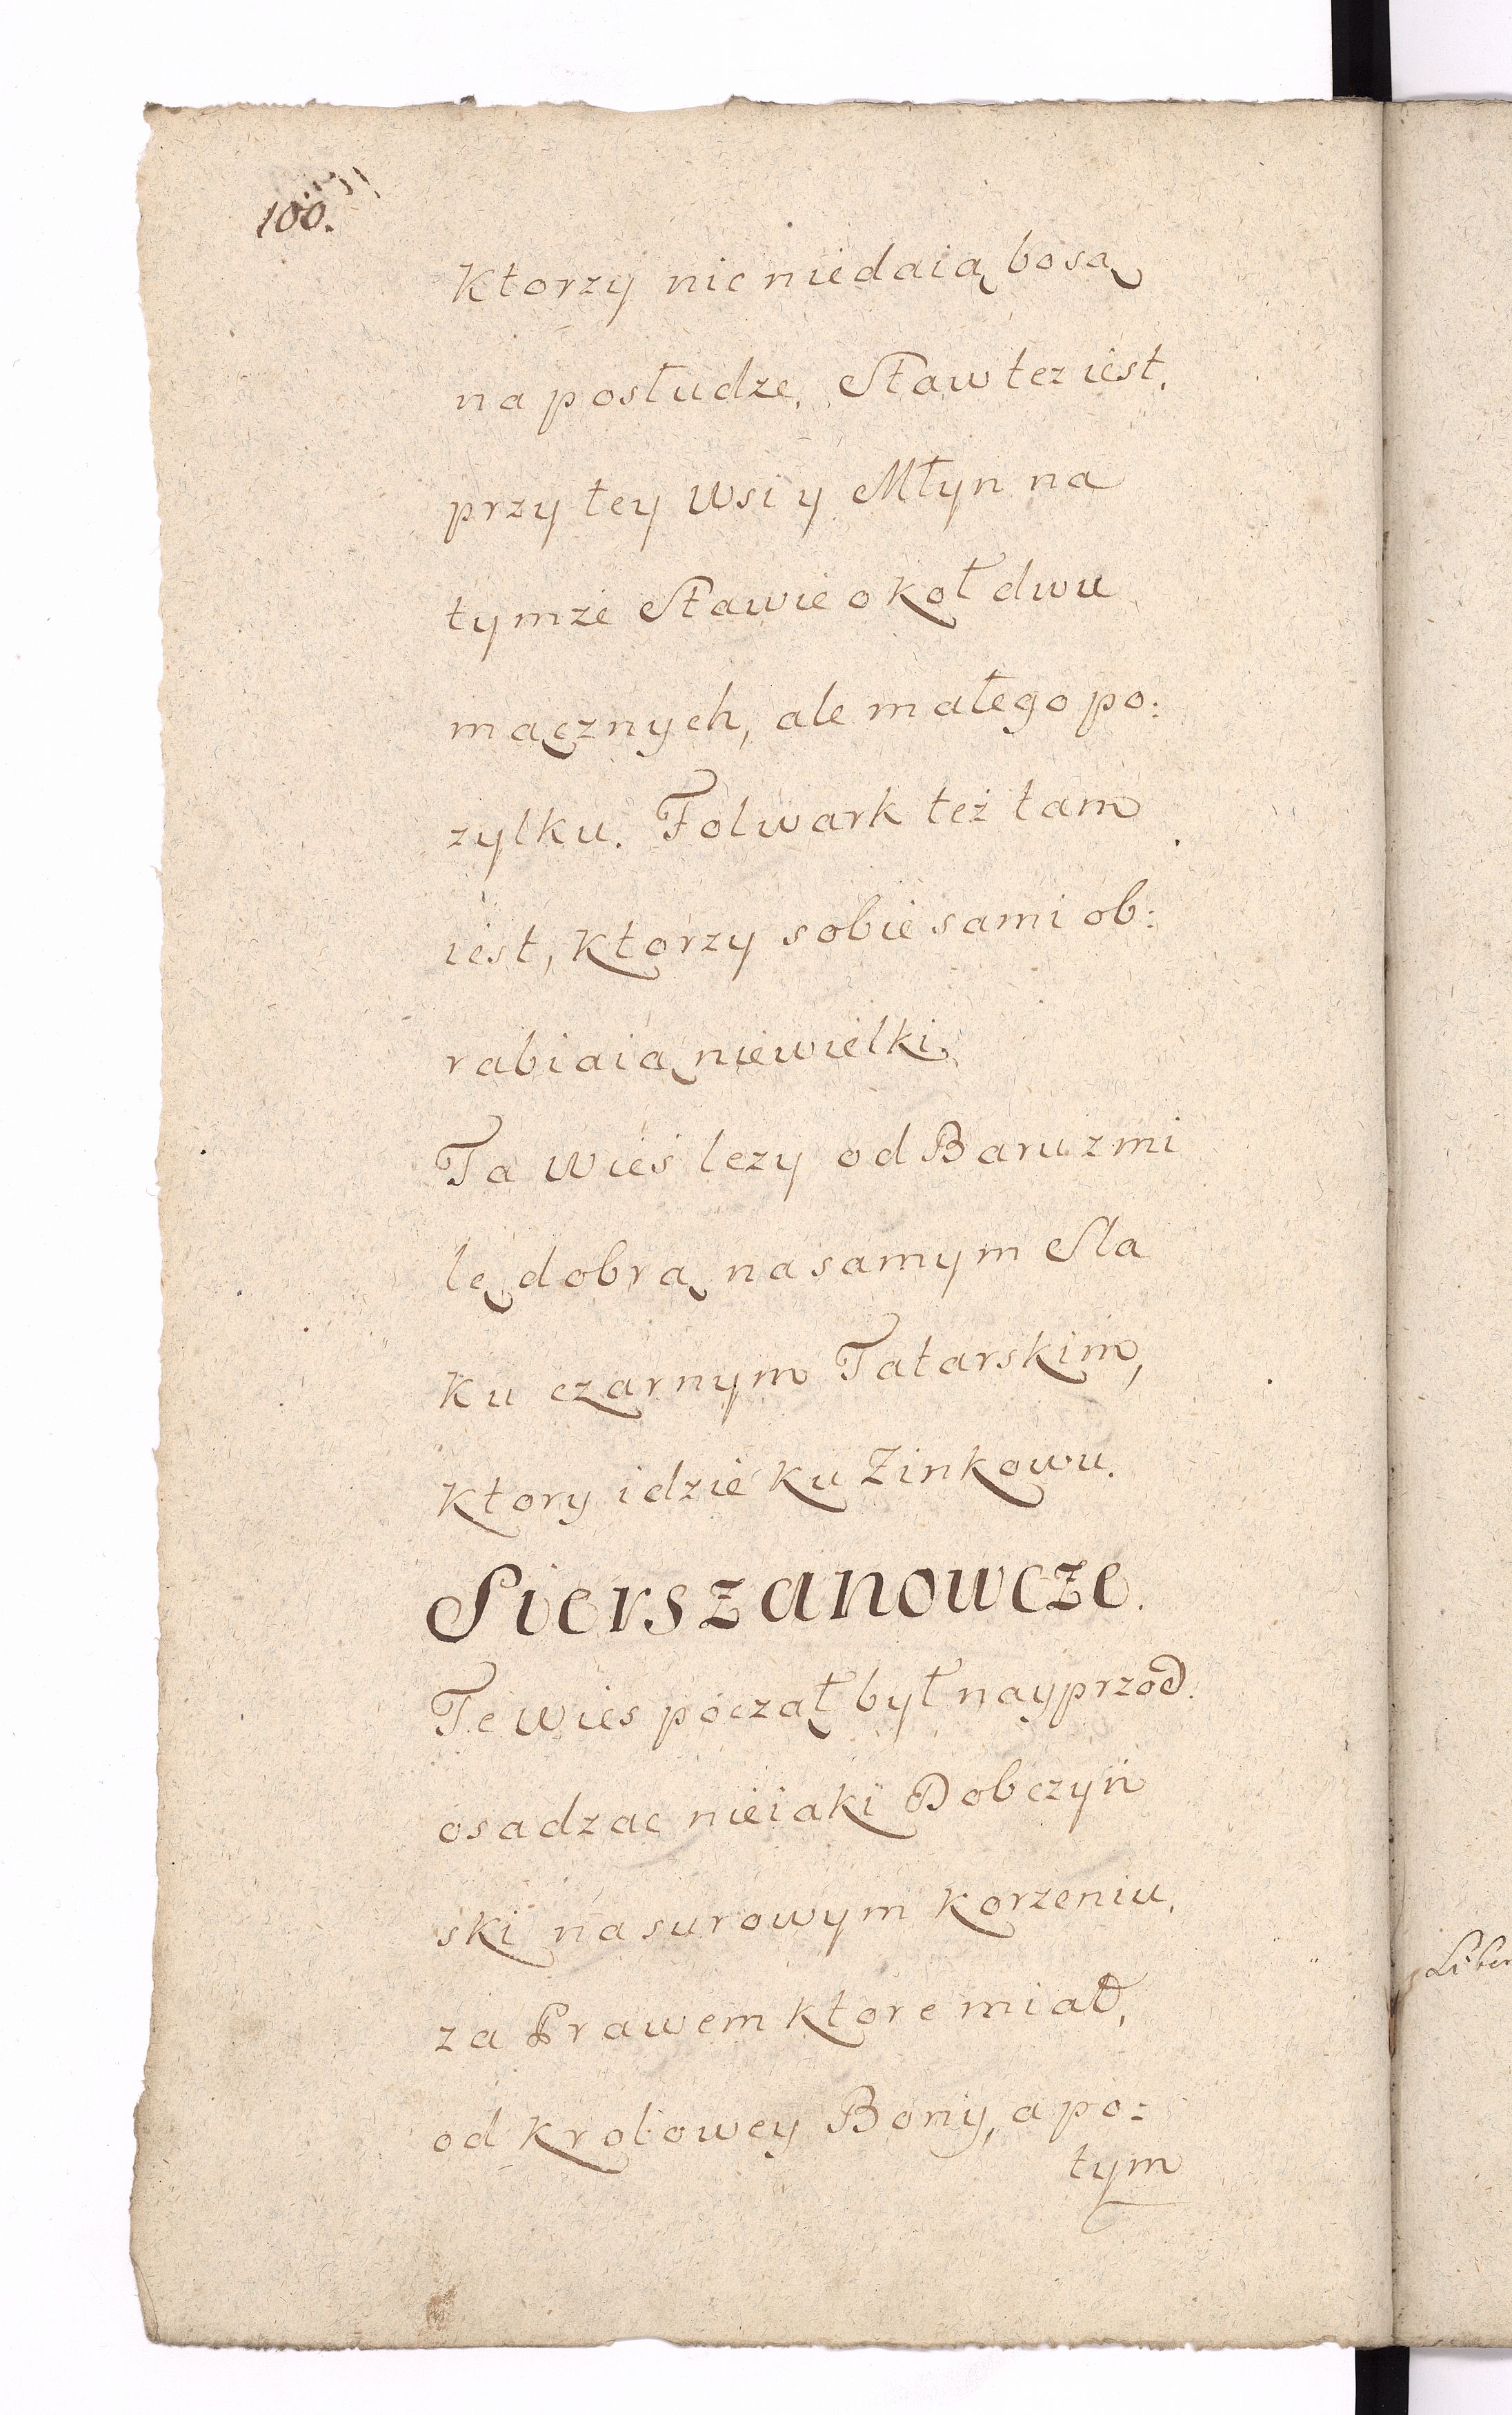 100.
Ktorzy nic niedaią bosą
na posłudze. Staw tez iest.
przy tey Wsi y Młyn na
tymze Stawie o koł dwu
mącznych, ale małego po:
zytku. Folwark też tam
iest, ktorzy sobie sami ob:
rabiaią niewielki.
Ta Wieś lezy od Baru z mi
lę dobrą na samym Sla
ku czarnym Tatarskim,
ktory idzie ku Zinkowu.
Sierszanowcze.
Te Wies począł był nayprzod.
osadzac nieiaki Dobczyń
ski na surowym korzeniu,
za Prawem ktore miał,
od Krolowey Bony, a po:
tym